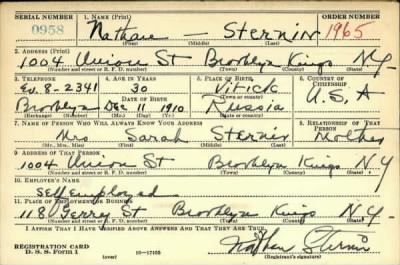 SERIAL NUMBER 1. NAME (Print) ORDER NUMBER
0958 Nathan — Sternin 1965
(First) (Middle) (Last)
2. ADDRESS (Print)
1004 Union St Brooklyn Kings N.Y.
(Number and street or R. F. D. number) (Town) (County) (State)
3. TELEPHONE 4. AGE IN YEARS 5. PLACE OF BIRTH 6. COUNTRY OF CITIZENSHIP
Ev. 8-2341 30 Vitick
DATE OF BIRTH (Town or county) U.S.A
Brooklyn Dec 11 1910 Russia
(Exchange) (Mo.) (Day) (Yr.) (State or country)
7. NAME OF PERSON WHO WILL ALWAYS KNOW YOUR ADDRESS 8. RELATIONSHIP OF THAT PERSON
Mrs Sarah Sternin Mother
(Mr., Mrs., Miss) (First) (Middle) (Last)
9. ADDRESS OF THAT PERSON
1004 Union St Brooklyn Kings N.Y.
(Number and street or R. F. D. number) (Town) (County) (State)
10. EMPLOYER'S NAME
Self Employed
11. PLACE OF EMPLOYMENT OR BUSINESS
118 Gerry St Brooklyn Kings N.Y.
(Number and street or R. F. D. number) (Town) (County) (State)
I AFFIRM THAT I HAVE VERIFIED ABOVE ANSWERS AND THAT THEY ARE TRUE.
REGISTRATION CARD
D. S. S. Form 1 (over) 16—17105 Nathan Sternin
(Registrant's signature)